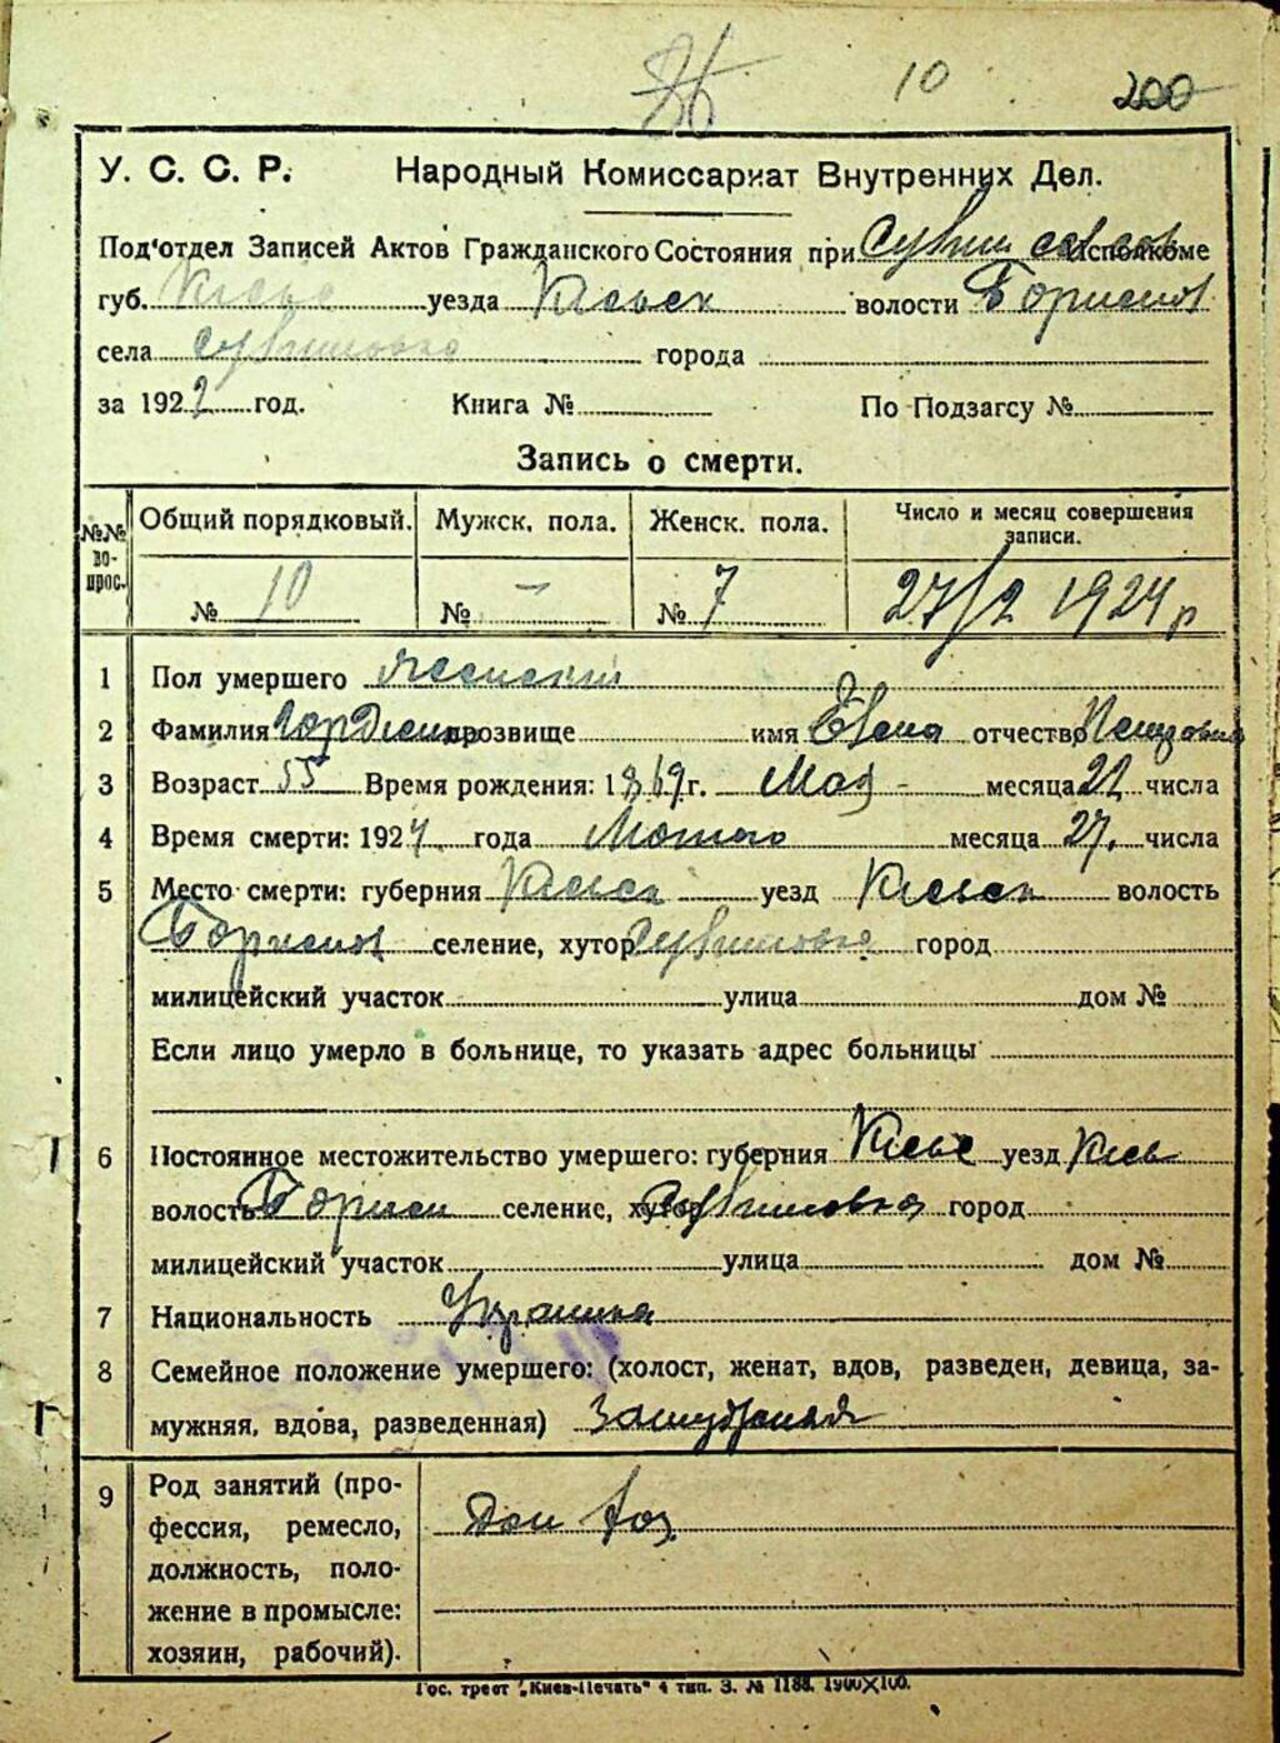 10 200
У. С. С. Р. Народный Комиссариат Внутренних Дел.
Под'отдел Записей Актов Гражданского Состояния при исполкоме
губ. Киевс уезда Киевск волости
села города
за 1922 год. Книга № По Подзагсу №
Запись о смерти.
№№ вопрос. Общий порядковый. Мужск. пола. Женск. пола. Число и месяц совершения записи.
№ 10 № — № 7 27/2 1924 р
1 Пол умершего Женский
2 Фамилия прозвище имя Елена отчество
3 Возраст 55 Время рождения: 1869 г. Мая месяца 22 числа
4 Время смерти: 1924 года Лютого месяца 27. числа
5 Место смерти: губерния Киевск уезд Киевск волость
селение, хутор город
милицейский участок улица дом №
Если лицо умерло в больнице, то указать адрес больницы
6 Постоянное местожительство умершего: губерния Киевс уезд Киев
волость селение, хутор город
милицейский участок улица дом №
7 Национальность Украинка
8 Семейное положение умершего: (холост, женат, вдов, разведен, девица, за-
мужняя, вдова, разведенная) Замужная
9 Род занятий (про-
фессия, ремесло, Дом хоз
должность, поло-
жение в промысле:
хозяин, рабочий).
Гос. трест „Киев-Печать" 4 тип. З. № 1188. 1900×100.